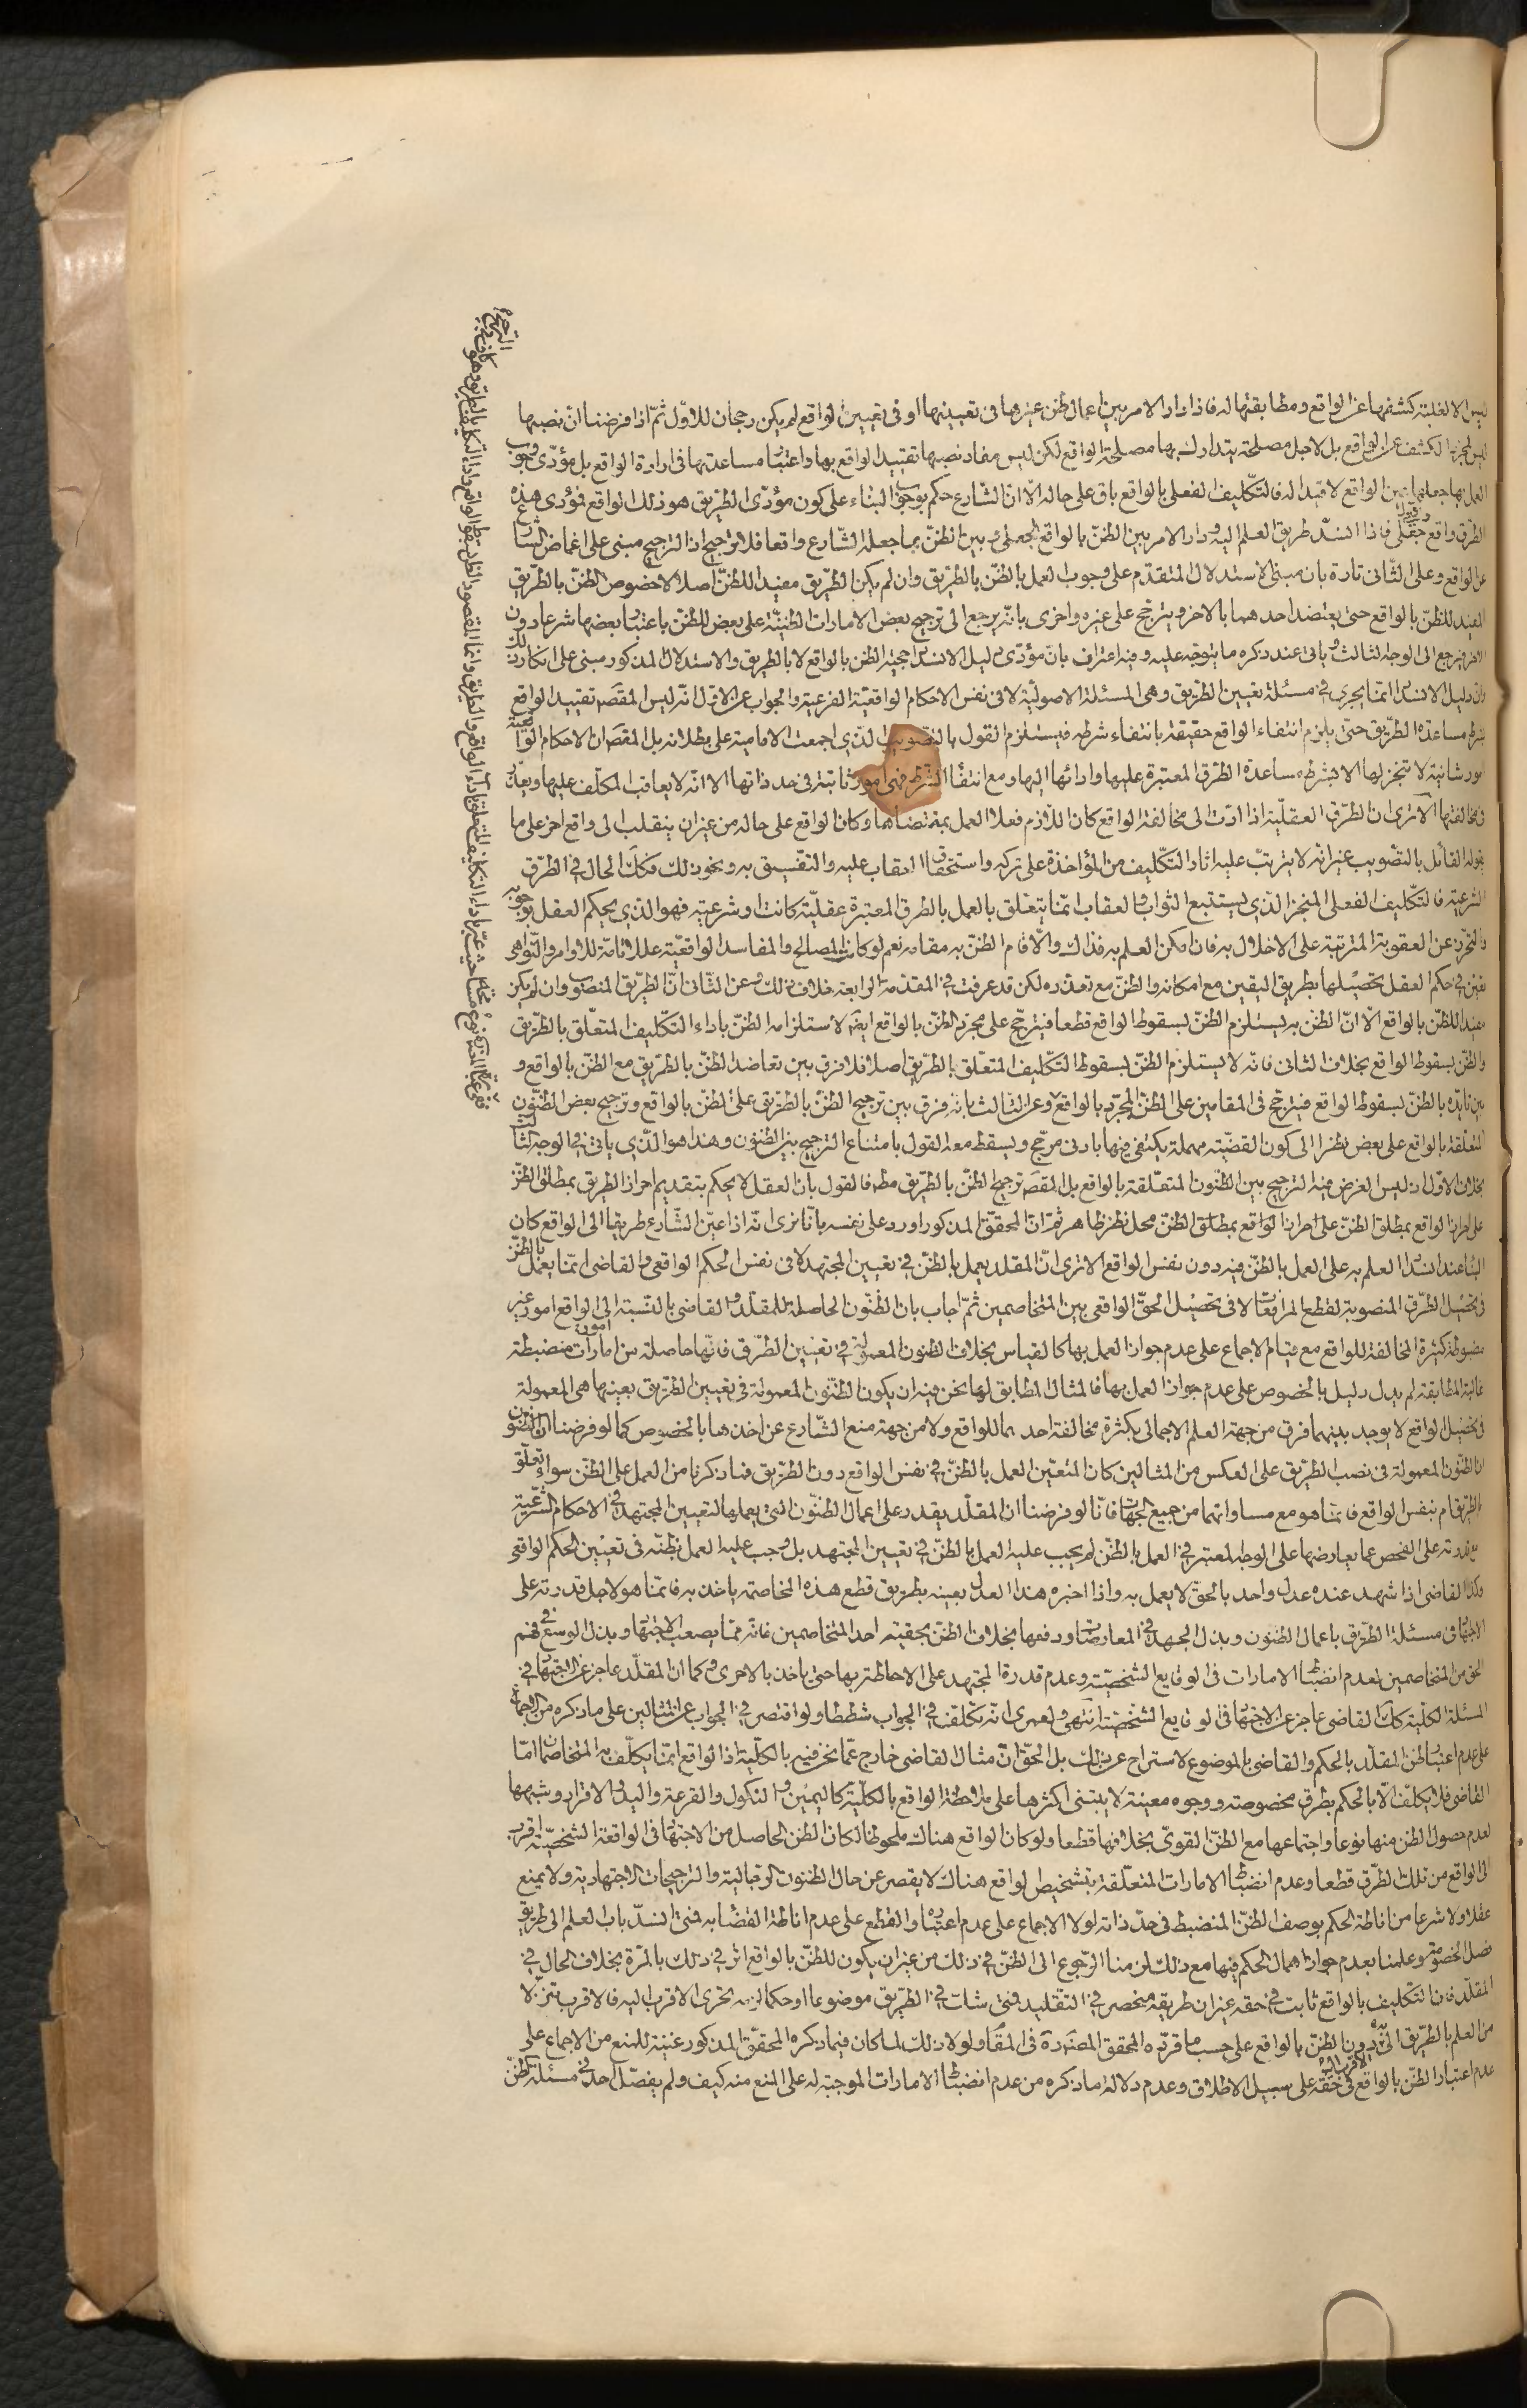 ليس الا لغلبة كشفها عن الواقع ومطابقتها له فاذا دار الامر بين اعمال ظن غيرها فى تعيينها او فى تعيين الواقع لم يكن رجحان للاول ثم اذا فرضنا ان نصبها
ليس لمجرد الكشف عن الواقع بل لاجل مصلحة يتدارك بها مصلحة الواقع لكن ليس مفاد نصبها تقييد الواقع بها واعتبار مساعدتها فى ارادة الواقع بل مؤدى وجوب
العمل بها جعلها عين الواقع لا قيدا له فالتكليف الفعلى بالواقع باق على حاله الا ان الشارع حكم بوجوب البناء على كون مؤدى الطريق هو ذلك الواقع فمؤدى هذه
الطرق واقع جعلى فاذا انسد طريق العلم اليه ودار الامر بين الظن بالواقع الجعلى وبين الظن بما جعله الشارع واقعا فلا ترجيح اذ الترجيح مبنى على اغماض الشارع
عن الواقع وعلى الثانى تارة بان مبنى الاستدلال المتقدم على وجوب العمل بالظن بالطريق وان لم يكن الطريق مفيدا للظن اصلا لا خصوص الظن بالطريق
المفيد للظن بالواقع حتى يعتضد احدهما بالاخر ويترجح على غيره واخرى بانه يرجع الى ترجيح بعض الامارات الظنية على بعض للظن باعتبار بعضها شرعا دون
الاخر فيرجع الى الوجه الثالث وياتى عند ذكره ما يتوجه عليه وفيه اعتراف بان مؤدى دليل الانسداد حجية الظن بالواقع لا بالطريق والاستدلال المذكور مبنى على انكار ذلك
وان دليل الانسداد انما يجرى فى مسئلة تعيين الطريق وهى المسئلة الاصولية لا فى نفس الاحكام الواقعية الفرعية والجواب عن الاول انه ليس المقصد تقييد الواقع
بشرط مساعدة الطريق حتى يلزم انتفاء الواقع حقيقة بانتفاء شرطه فيستلزم القول بالتصويب الذى اجمعت الامامية على بطلانه بل المقصد ان الاحكام الواقعية
امور شانية لا تنجز لها الا بشرط مساعدة الطرق المعتبرة عليها وادائها اليها ومع انتفاء الشرط فهى امور ثابتة فى حد ذاتها الا انه لا يعاقب المكلف عليها ويعذر
فى مخالفتها الا ترى ان الطرق العقلية اذا ادت الى مخالفة الواقع كان اللازم فعلا العمل بمقتضاها وكان الواقع على حاله من غير ان ينقلب الى واقع اخر على ما
يقوله القائل بالتصويب غير انه لا يترتب عليه اثار التكليف من المؤاخذة على تركه واستحقاق العقاب عليه والتفسيق به ونحو ذلك فكك الحال فى الطرق
الشرعية فالتكليف الفعلى المنجز الذى يستتبع الثواب والعقاب انما يتعلق بالعمل بالطرق المعتبرة عقلية كانت او شرعية فهو الذى يحكم العقل بوجوبه
والتحرز عن العقوبة المترتبة على الاخلال به فان امكن العلم به فذاك والا قام الظن به مقامه نعم لو كانت المصالح والمفاسد الواقعية عللا تامة للاوامر والنواهى
تعين فى حكم العقل تحصيلها بطريق اليقين مع امكانه والظن مع تعذره لكن قد عرفت فى المقدمة الرابعة خلاف ذلك وعن الثانى ان الطريق المنصوب وان لم يكن
مفيدا للظن بالواقع الا ان الظن به يستلزم الظن بسقوط الواقع قطعا فيترجح على مجرد الظن بالواقع ايضا لاستلزامه الظن باداء التكليف المتعلق بالطريق
والظن بسقوط الواقع بخلاف الثانى فانه لا يستلزم الظن بسقوط التكليف المتعلق بالطريق اصلا فلا فرق بين تعاضد الظن بالطريق مع الظن بالواقع و
بين تايده بالظن بسقوط الواقع فيترجح فى المقامين على الظن المجرد بالواقع وعن الثالث بانه فرق بين ترجيح الظن بالطريق على الظن بالواقع وترجيح بعض الظنون
المتعلقة بالواقع على بعض نظرا الى كون القضية مهملة يكتفى فيها بادنى مرجح ويسقط معه القول بامتناع الترجيح بين الظنون وهذا هو الذى ياتى فى الوجه الثالث
بخلاف الاول اذ ليس الغرض فيه الترجيح بين الظنون المتعلقة بالواقع بل المقصد ترجيح الظن بالطريق مطلقا فالقول بان العقل لا يحكم بتقديم احراز الطريق بمطلق الظن
على احراز الواقع بمطلق الظن محل نظر ظاهر ثم ان المحقق المذكور اورد على نفسه بانا نرى انه اذا عين الشارع طريقا الى الواقع كان
البناء عند انسداد العلم به على العمل بالظن فيه دون نفس الواقع الا ترى ان المقلد يعمل بالظن فى تعيين المجتهد لا فى نفس الحكم الواقعى والقاضى انما يعمل بالظن
فى تحصيل الطرق المنصوبة لقطع المرافعات لا فى تحصيل الحق الواقعى بين المتخاصمين ثم اجاب بان الظنون الحاصلة للمقلد والقاضى بالنسبة الى الواقع امور غير
مضبوطة كثيرة المخالفة للواقع مع قيام الاجماع على عدم جواز العمل بها كالقياس بخلاف الظنون المعمولة فى تعيين الطرق فانها حاصلة من امارات منضبطة
غالبة المطابقة لم يدل دليل بالخصوص على عدم جواز العمل بها فالمثال المطابق لما نحن فيه ان يكون الظنون المعمولة فى تعيين الطريق بعينها هى المعمولة
فى تحصيل الواقع لا يوجد بينهما فرق من جهة العلم الاجمالى بكثرة مخالفة احدهما للواقع ولا من جهة منع الشارع عن احدهما بالخصوص كما لو فرضنا ان الظنون
المعمولة فى نصب الطريق على العكس من المثالين كان المتعين العمل بالظن فى نفس الواقع دون الطريق فما ذكرنا من العمل على الظن سواء تعلق
بالطريق ام بنفس الواقع فانما هو مع مساواتهما من جميع الجهات فانا لو فرضنا ان المقلد يقدر على اعمال الظنون التى يعملها لتعيين المجتهد فى الاحكام الشرعية
مع قدرته على الفحص عما يعارضها على الوجه المعتبر فى العمل بالظن لم يجب عليه العمل بالظن فى تعيين المجتهد بل وجب عليه العمل بظنه فى تعيين الحكم الواقعى
وكذا القاضى اذا شهد عنده عدل واحد بالحق لا يعمل به واذا اخبره هذا العدل بعينه بطريق قطع هذه المخاصمة ياخذ به فانما هو لاجل قدرته على
الاجتهاد فى مسئلة الطريق باعمال الظنون وبذل الجهد فى المعارضات ودفعها بخلاف الظن بحقية احد المتخاصمين فانه مما يصعب الاجتهاد وبذل الوسع فى فهم
الحق من المتخاصمين لعدم انضباط الامارات فى الوقايع الشخصية وعدم قدرة المجتهد على الاحاطة بها حتى ياخذ بالاحرى وكما ان المقلد عاجز عن الاجتهاد فى
المسئلة الكلية كك القاضى عاجز عن الاجتهاد فى الوقايع الشخصية انتهى ولعمرى انه تكلف فى الجواب شططا ولو اقتصر فى الجواب عن المثالين على ما ذكره من الاجماع
على عدم اعتبار ظن المقلد بالحكم والقاضى بالموضوع لاستراح عن ذلك بل الحق ان مثال القاضى خارج عما نحن فيه بالكلية اذ الواقع انما يكلف به المتخاصمان اما
القاضى فلا يكلف الا بالحكم بطرق مخصوصة ووجوه معينة لا يبتنى اكثرها على ملاحظة الواقع بالكلية كاليمين والنكول والقرعة واليد والاقرار وشبهها
لعدم حصول الظن منها نوعا واجتماعها مع الظن القوى بخلافها قطعا ولو كان الواقع هناك ملحوظا لكان الظن الحاصل من الاجتهاد فى الواقعة الشخصية اقرب
الى الواقع من تلك الطرق قطعا وعدم انضباط الامارات المتعلقة بتشخيص الواقع هناك لا يقصر عن حال الظنون الرجالية والترجيحات الاجتهادية ولا يمنع
عقلا ولا شرعا من اناطة الحكم بوصف الظن المنضبط فى حد ذاته لولا الاجماع على عدم اعتباره والقطع على عدم اناطة القضاء به فمتى انسد باب العلم الى طريق
فصل الخصومة وعلمنا بعدم جواز اهمال الحكم فيها مع ذلك لزمنا الرجوع الى الظن فى ذلك من غير ان يكون للظن بالواقع اثر فى ذلك بالمرة بخلاف الحال فى
المقلد فان التكليف بالواقع ثابت فى حقه غير ان طريقه منحصر فى التقليد فمتى شك فى الطريق موضوعا او حكما لزمه تحرى الاقرب اليه فالاقرب تنزلا
من العلم بالطريق الى الظن به دون الظن بالواقع على حسب ما قرره المحقق المصدر فى المقام ولولا ذلك لما كان فيما ذكره المحقق المذكور غنية للمنع من الاجماع على
عدم اعتبار الظن بالواقع فى حقه على سبيل الاطلاق وعدم دلالة ما ذكره من عدم انضباط الامارات الموجبة له على المنع منه كيف ولم يفصل احد فى مسئلة ظن